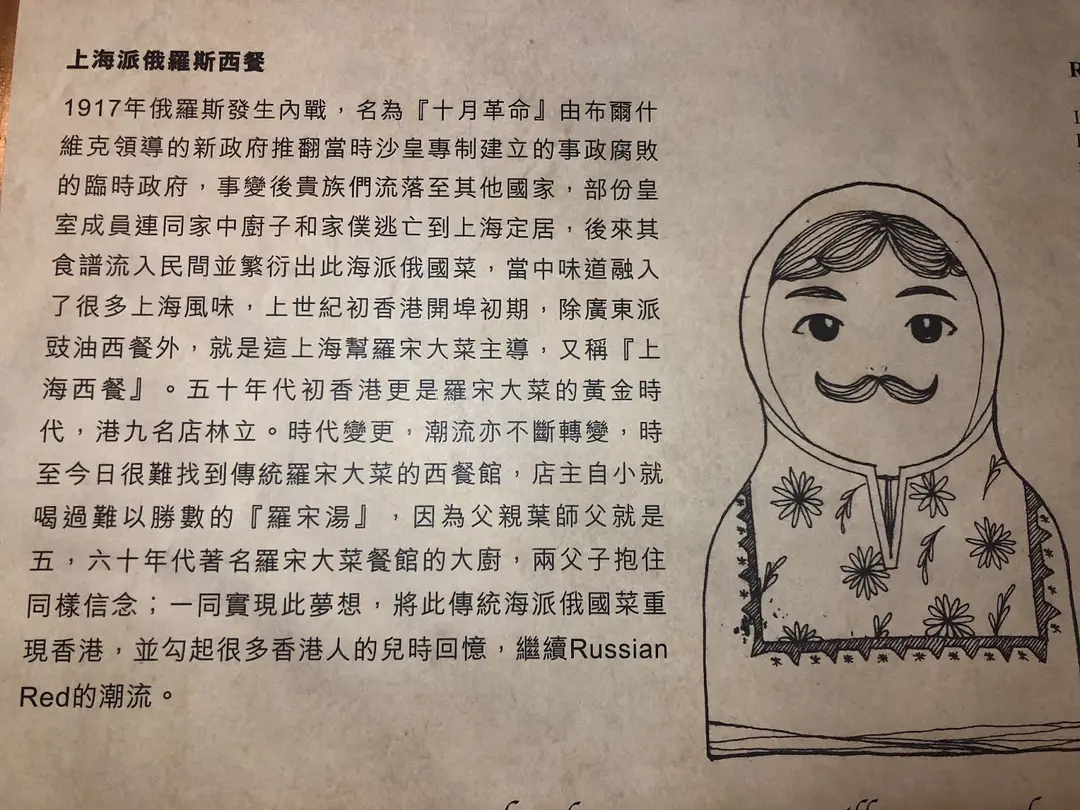 上海派俄羅斯西餐
1917年俄羅斯發生內戰，名為『十月革命』由布爾什
維克領導的新政府推翻當時沙皇專制建立的事政腐敗
的臨時政府，事變後貴族們流落至其他國家，部份皇
室成員連同家中廚子和家僕逃亡到上海定居，後來其
食譜流入民間並繁衍出此海派俄國菜，當中味道融入
了很多上海風味，上世紀初香港開埠初期，除廣東派
豉油西餐外，就是這上海幫羅宋大菜主導，又稱『上
海西餐』。五十年代初香港更是羅宋大菜的黃金時
代，港九名店林立。時代變更，潮流亦不斷轉變，時
至今日很難找到傳統羅宋大菜的西餐館，店主自小就
喝過難以勝數的『羅宋湯』，因為父親葉師父就是
五，六十年代著名羅宋大菜餐館的大廚，兩父子抱住
同樣信念；一同實現此夢想，將此傳統海派俄國菜重
現香港，並勾起很多香港人的兒時回憶，繼續Russian
Red的潮流。